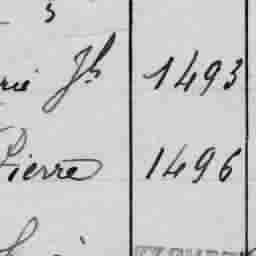 rie Jh 1493
Pierre 1496